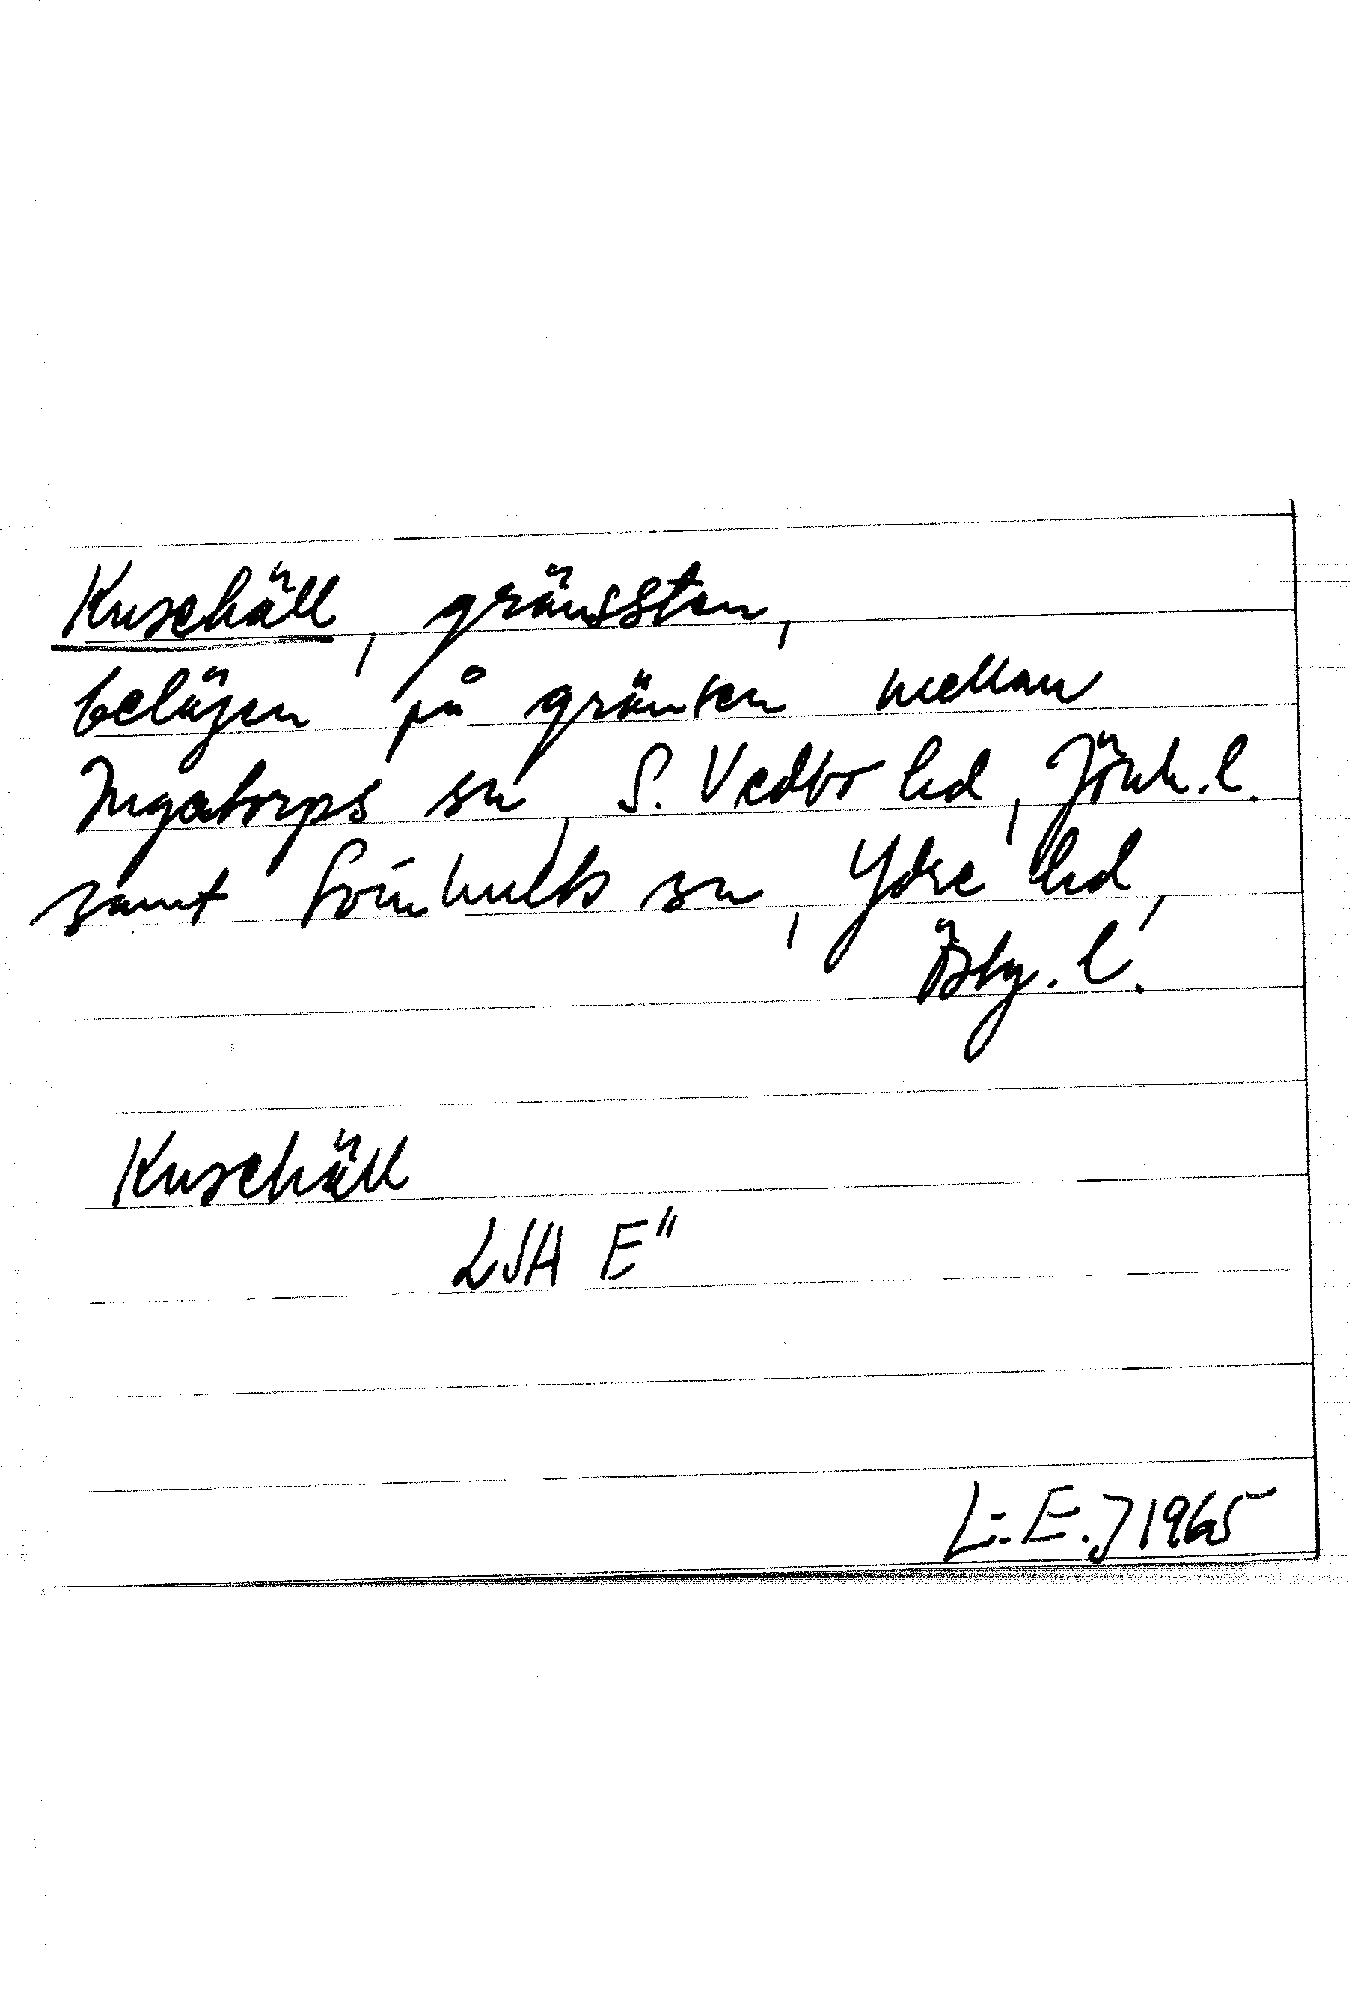 Kuschäll, gränssten,
belägen på gränsen mellan
Ingatorps sn, S. Vedbo hd, Jönk. l.
samt Svinhults sn, Ydre hd,
Östg. l.
Kuschäll
LSA E"
L-E.J 1965